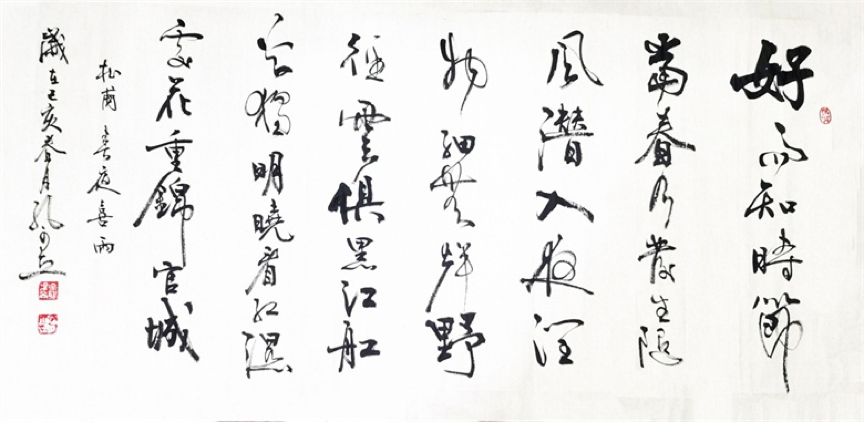 好雨知時節
當春乃發生隨
風潛入夜潤
物細無聲野
徑雲俱黑江船
火獨明曉看紅濕
處花重錦官城
杜甫 春夜喜雨
歲在己亥春月